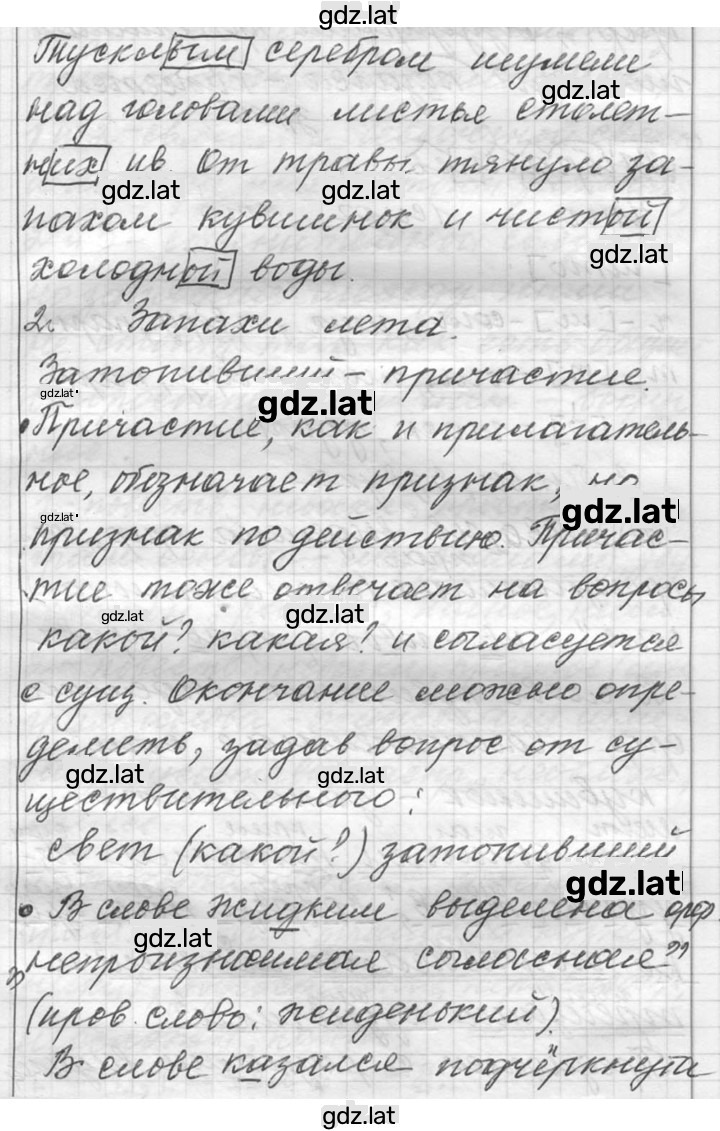 gdz.lat
Тусклым серебром шумели
gdz.lat
над головами листья столет-
них ив. От травы тянуло за-
gdz.lat gdz.lat
пахом кувшинок и чистой
gdz.lat
холодной воды.
2. Запахи лета.
Затопивший - причастие.
gdz.lat gdz.lat
• Причастие, как и прилагатель-
ное, обозначает признак, но
gdz.lat gdz.lat
признак по действию. Причас-
тие тоже отвечает на вопросы
gdz.lat gdz.lat
какой? какая? и согласуется
с сущ. Окончание можно опре-
делить, задав вопрос от су-
gdz.lat gdz.lat
ществительного:
свет (какой?) затопивший
gdz.lat
• В слове жидким выделена орф
gdz.lat
„непроизносимая согласная"
(пров. слово: жиденький).
В слове казался подчёркнута
gdz.lat